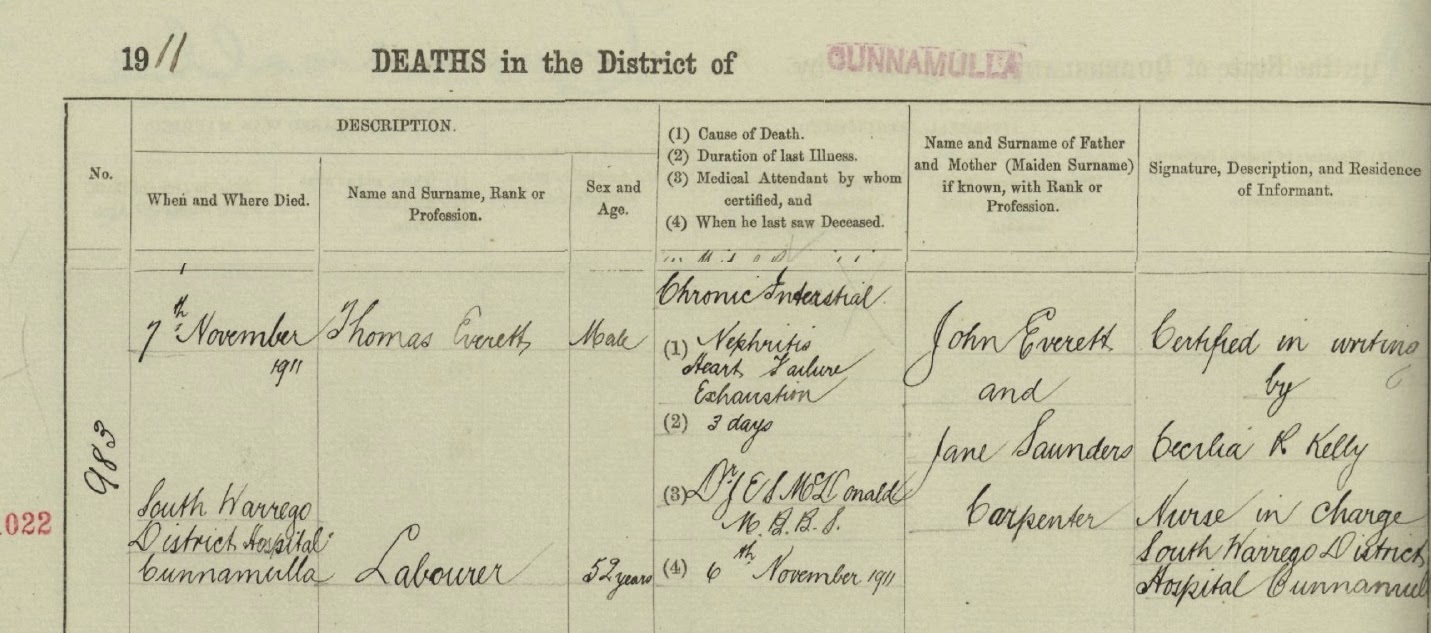 1911 DEATHS in the District of CUNNAMULLA
No.
DESCRIPTION.
When and Where Died.
Name and Surname, Rank or
Profession.
Sex and
Age.
(1) Cause of Death.
(2) Duration of last Illness.
(3) Medical Attendant by whom
certified, and
(4) When he last saw Deceased.
Name and Surname of Father
and Mother (Maiden Surname)
if known, with Rank or
Profession.
Signature, Description, and Residence
of Informant.
983
022
7th November
1911
South Warrego
District Hospital
Cunnamulla
Thomas Everett
Labourer
Male
52 years
Chronic Interstial
(1) Nephritis
Heart Failure
Exhaustion
(2) 3 days
(3) Dr J E S McDonald
M.B.B.S.
(4) 6th November 1911
John Everett
and
Jane Saunders
Carpenter
Certified in writing
by
Cecilia R Kelly
Nurse in charge
South Warrego District
Hospital Cunnamul